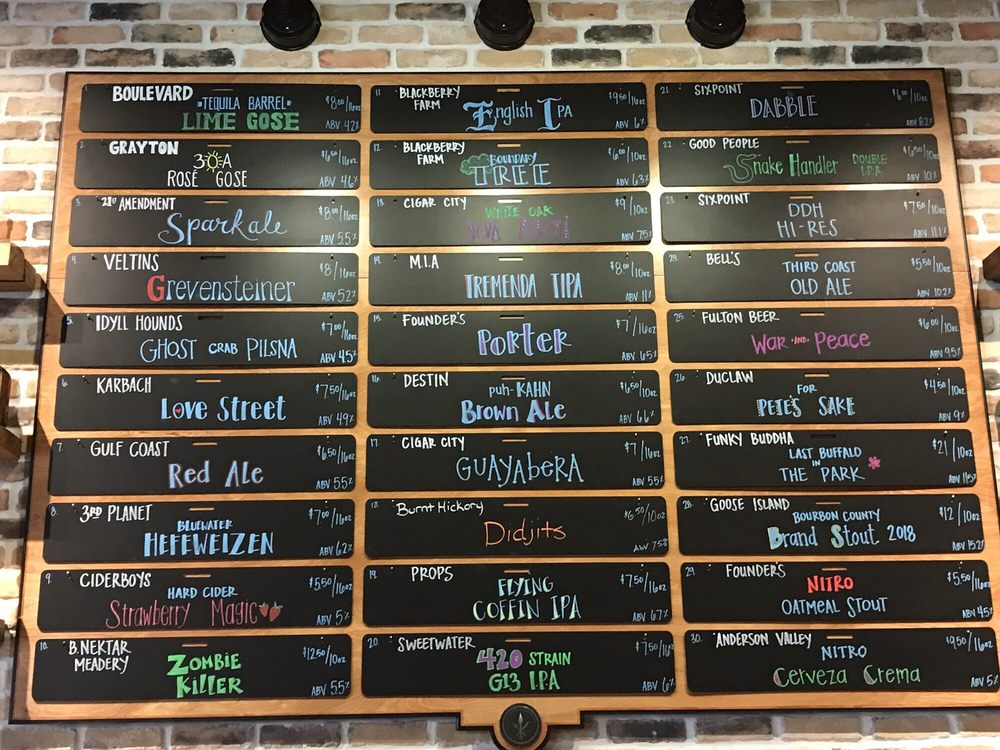 1. BOULEVARD
TEQUILA BARREL
LIME GOSE
$8.00/16oz
ABV 4.2%
2. GRAYTON
30A
ROSÉ GOSE
$6.50/16oz
ABV 4.6%
3. 21st AMENDMENT
Sparkale
$8.00/16oz
ABV 5.5%
4. VELTINS
Grevensteiner
$8/16oz
ABV 5.2%
5. IDYLL HOUNDS
GHOST CRAB PILSNA
$7.00/16oz
ABV 4.5%
6. KARBACH
Love Street
$7.50/16oz
ABV 4.9%
7. GULF COAST
Red Ale
$6.50/16oz
ABV 5.5%
8. 3RD PLANET
BLUEWATER
HEFEWEIZEN
$7.00/16oz
ABV 6.2%
9. CIDERBOYS
HARD CIDER
Strawberry Magic
$5.50/16oz
ABV 5%
10. B. NEKTAR
MEADERY
ZOMBIE
KILLER
$12.50/10oz
ABV 5.5%
11. BLACKBERRY
FARM
English IPA
$9.50/16oz
ABV 6%
12. BLACKBERRY
FARM
BOUNDARY
TREE
$6.00/10oz
ABV 6.3%
13. CIGAR CITY
WHITE OAK
$9/10oz
ABV 7.5%
14. M.I.A
TREMENDA TIPA
$8.00/10oz
ABV 11%
15. FOUNDER'S
PORTER
$7/16oz
ABV 6.5%
16. DESTIN
puh-KAHN
Brown Ale
$6.50/10oz
ABV 6.6%
17. CIGAR CITY
GUAYABERA
$7/16oz
ABV 5.5%
18. Burnt Hickory
Didjits
$6.50/10oz
ABV 7.5%
19. PROPS
FLYING
COFFIN IPA
$7.50/16oz
ABV 6.7%
20. SWEETWATER
420 STRAIN
G13 I.P.A
$7.50/16oz
ABV 6%
21. SIXPOINT
DABBLE
$6.00/10oz
ABV 8.2%
22. GOOD PEOPLE
Snake Handler DOUBLE
I.P.A.
$6.50/10oz
ABV 10%
23. SIXPOINT
DDH
HI-RES
$7.50/10oz
ABV 11.1%
24. BELL'S
THIRD COAST
OLD ALE
$5.50/10oz
ABV 10.2%
25. FULTON BEER
WAR AND PEACE
$6.00/10oz
ABV 9.5%
26. DUCLAW
FOR
PETE'S SAKE
$4.50/10oz
ABV 9%
27. FUNKY BUDDHA
LAST BUFFALO
IN
THE PARK
$21/10oz
ABV 11.5%
28. GOOSE ISLAND
BOURBON COUNTY
Brand Stout 2018
$12/10oz
ABV 15.2%
29. FOUNDER'S
NITRO
OATMEAL STOUT
$5.50/16oz
ABV 4.5%
30. ANDERSON VALLEY
NITRO
Cerveza Crema
$9.50/16oz
ABV 5%